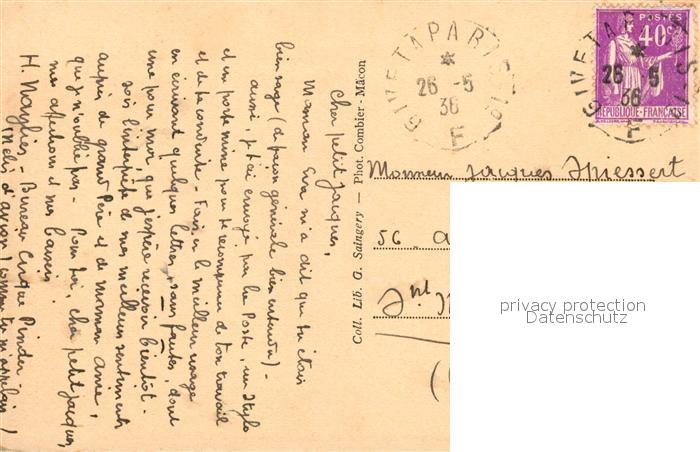 Cher petit Jacques,
Maman Eva m'a dit que tu étais
bien sage (de façon générale bien entendu) -
aussi, je t'ai envoyé par la Poste, un stylo
et un porte mine pour te récompenser de ton travail
et de ta conduite - Fais en le meilleur usage
en écrivant quelques lettres, sans fautes, dont
une pour moi, que j'espère recevoir bientôt.
Sois l'interprète de mes meilleurs sentiments
auprès de grand Père et de maman Anna,
que je n'oublie pas - Pour toi, cher petit Jacques
mes affections et mes baisers.
H. - Bureau Cirque Pinder
Coll. Lib. G. Saingery — Phot. Combier - Mâcon
GIVET A PARIS 1°
26 -5
36
E
GIVET A PARIS
26 -5
36
E
POSTES
40c
REPUBLIQUE-FRANÇAISE
Monsieur Jacques Spiessert
56
privacy protection
Datenschutz